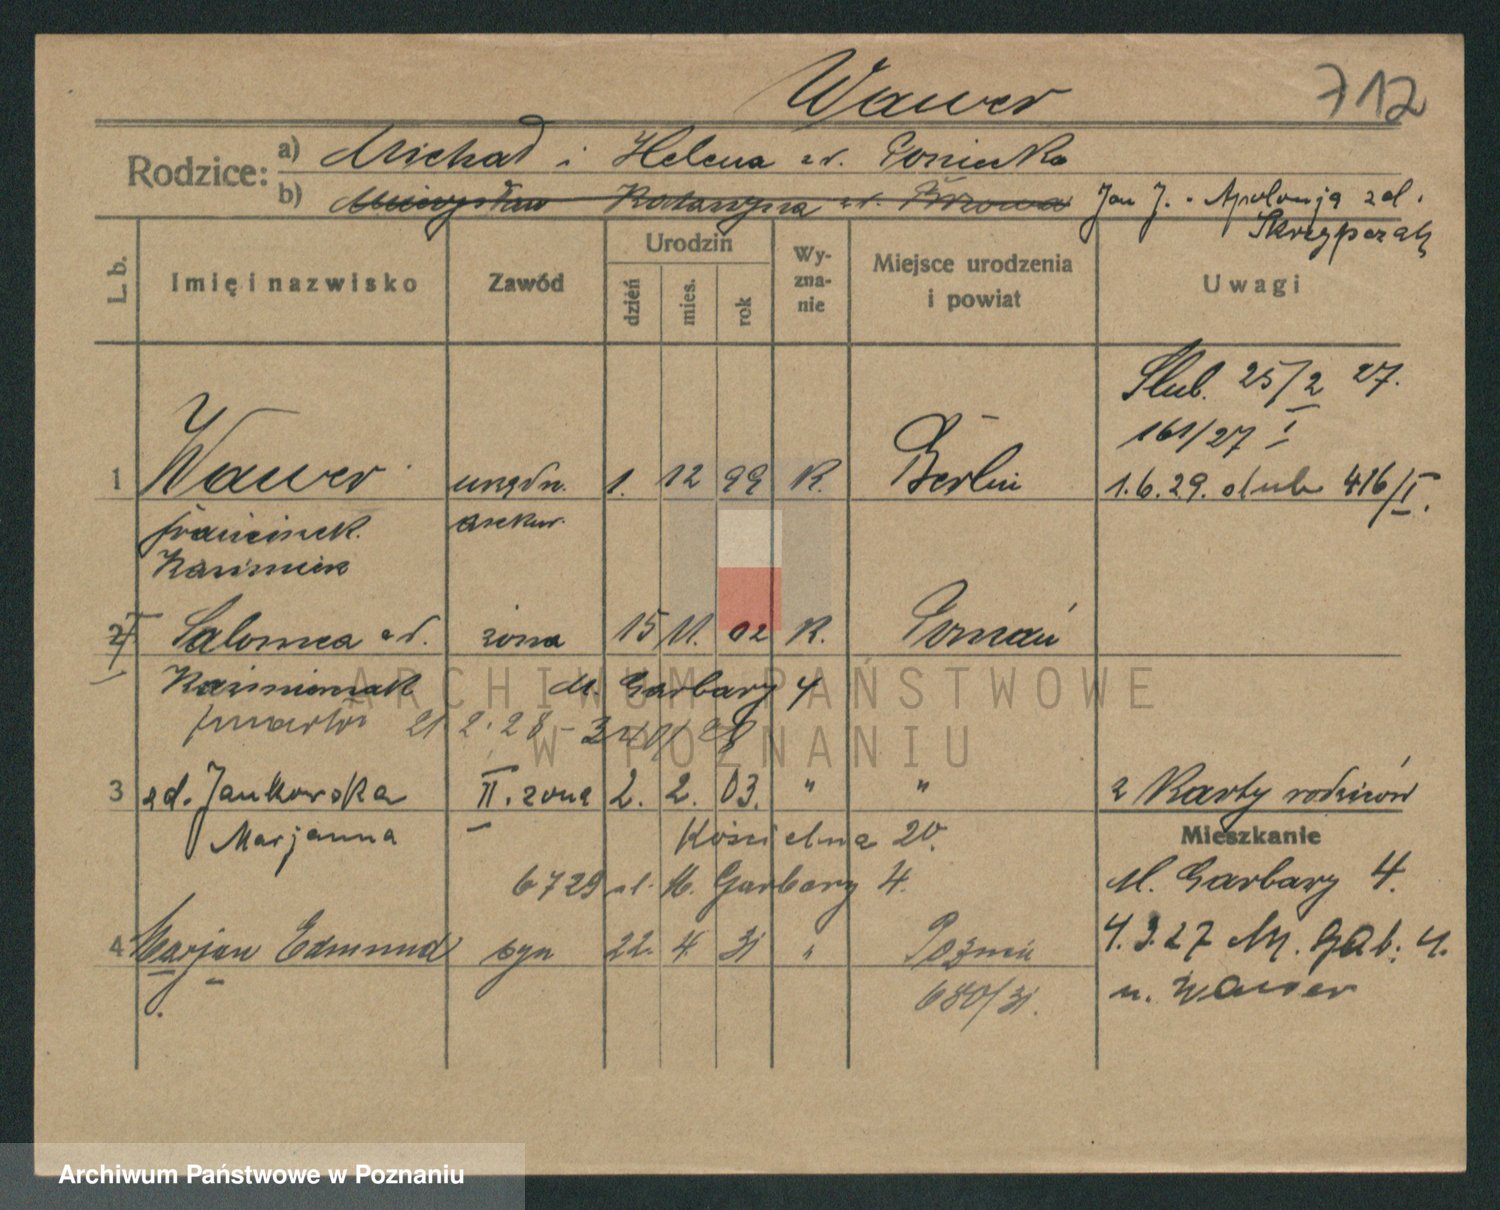 Wawer
712
Rodzice: a) Michał i Helena zd.
b) Mieczysław Katarzyna zd. Jan J. - Apolonja zd.
Skrzypczak
L. b. Imię i nazwisko Zawód Urodzin dzień mies. rok Wyznanie Miejsce urodzenia i powiat Uwagi
Ślub. 25/2 27.
161/27 I
1 Wawer urzędn. 1. 12 99 R. Berlin 1.6.29. ślub 416/I.
Franciszek asekur.
Kazimierz
2 Salomea zd. żona 15 11. 02 R. Poznań
Kaźmierczak M. Garbary 4
zmarła 21 2. 28 -
3 zd. Jankowska II. żona 2. 2. 03. " " z Karty rodziców
Marjanna Kościelna 20.
Mieszkanie
6729 ul. M. Garbary 4. M. Garbary 4.
4 Marjan Edmund syn 22. 4 31 " Poznań 4.3.27 M. Gab. 4.
680/31. u. Wawer
ARCHIWUM PAŃSTWOWE
W POZNANIU
Archiwum Państwowe w Poznaniu